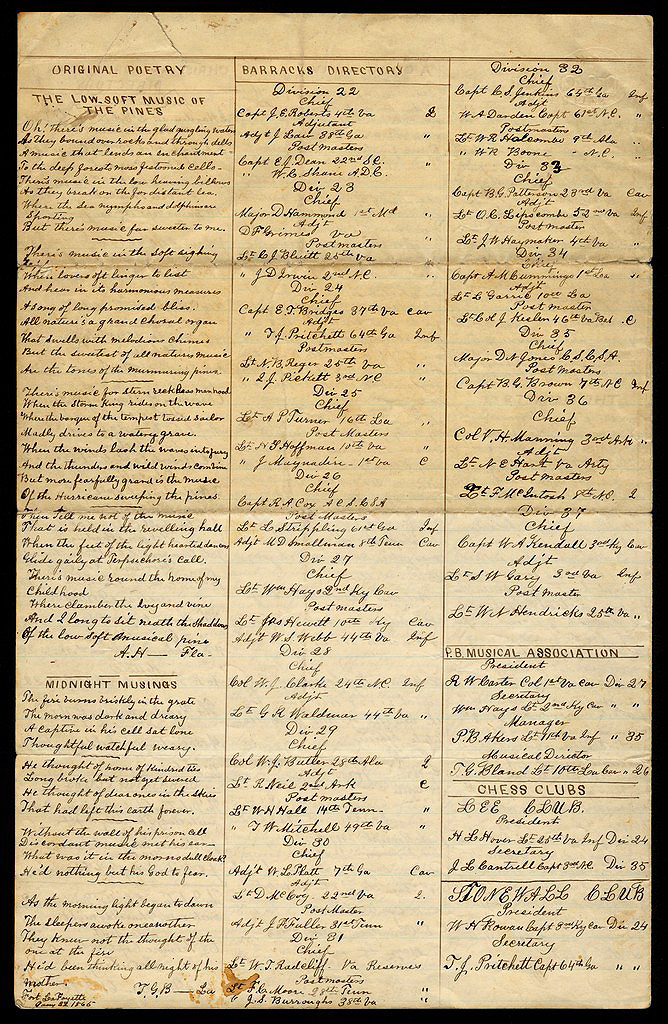 ORIGINAL POETRY
THE LOW SOFT MUSIC OF
THE PINES
Oh! there's music in the glad gurgling waters
As they bound over rocks and through dells
A music that lends an enchantment
To the deep forests moss festooned cells
There's music in the low heaving billows
As they break on the far distant lea
Where the sea nymphs and
Sporting
But there's music far sweeter to me.
There's music in the soft sighing
When lovers oft linger to list
And hear in its harmonious measures
A song of long promised bliss.
All nature's a grand choral organ
That swells with melodious chimes
But the sweetest of all natures music
Are the tones of the murmuring pines.
There's music for stern reckless manhood
When the Storm King rides on the wave
When the barque of the tempest tossed sailor
Madly drives to a watery grave.
When the winds lash the waves into fury
And the thunders and wild winds combine
But more fearfully grand is the music
Of the Hurricane sweeping the pines.
Then tell me not of the music
That is held in the revelling hall
When the feet of the light hearted dancers
Glide gaily at Terpsichore's call.
There's music round the home of my
Childhood
Where clamber the ivy and vine
And I long to sit neath the shadows
Of the low soft musical pine
A.H — Fla-
MIDNIGHT MUSINGS
The fire burns briskly in the grate
The morn was dark and dreary
A captive in his cell sat lone
Thoughtful watchful weary.
He thought of home of kindred ties
Long broke but not yet severed
He thought of dear ones in the skies
That had left this earth forever.
Without the wall of his prison cell
Discordant music met his ear
What was it in the morns dull cloak?
He'd nothing but his God to fear.
As the morning light began to dawn
The sleepers awoke one another
They knew not the thought of the
one at the fire
He'd been thinking all night of his
mother.
T.G.B — La
Fort La Fayette
1865
BARRACKS DIRECTORY
Division 22
Chief
Capt J.E. Roberts 4th Va 2
Adjutant
Adjt J Law 38th Ga "
Post Masters
Capt E.J. Dean 22nd S.C. "
" W.C. Shane A.D.C.
Div 23
Chief
Major D Hammond 1st Md "
Adjt
D F Grimes Va
Postmasters
Lt C J Bluitt 25th Va
" J D Irwin 2nd N.C. "
Div 24
Chief
Capt E.T. Bridges 37th Va Cav
Adjt
" T.J. Pritchett 64th Ga Inf
Postmasters
Lt N.B. Reger 25th Va "
" L.J. Pickett 3rd N.C "
Div 25
Chief
Lt A P Turner 16th La "
Post Masters
Lt N.S. Hoffman 10th Va "
" J Maynadier - 1st Va C
Div 26
Chief
Capt R A Cox A C S C S A
Post Masters
Lt L Stripling 61st Ga Inf
Adjt M D Smallman 8th Tenn Cav
Div 27
Chief
Lt Wm Hays 2nd Ky Cav
Postmasters
Lt Jas Hewitt 10th Ky Cav
Adjt W S Webb 44th Va Inf
Div 28
Chief
Col W.J. Clarke 24th N.C. Inf
Adjt
Lt G R Waldman 44th Va "
Div 29
Chief
Col W.J. Butler 28th Ala 2
Adjt
Lt R Neil 2nd Ark C
Postmasters
Lt W H Hall 14th Tenn- "
" T W Mitchell 49th Va "
Div 30
Chief
Adjt W L Platt 7th Ga Cav
Adjt
Lt D McCoy 22nd Va 2.
Post Master
Adjt J F Fuller 31st Tenn "
Div 31
Chief
Lt W T Radcliff Va Reserves
Postmasters
Lt F.C. Moore 28th Tenn "
" J.S. Burroughs 38th Va "
Division 32
Chief
Capt C S Jenkins 64th Ga Inf
Adjt
W A Darden Capt 61st N.C. "
Postmasters
Lt W R Halcombe 9th Ala "
" W R Boone - N.C. "
Div 33
Chief
Capt B G Patterson 23rd Va Cav
Adjt
Lt O.C. Lipscombe 52nd Va Inf
Post master
Lt J W Haymaker 4th Va "
Div 34
Chief
Capt A M Cummings 1st La "
Adjt
Lt L Garrie 10th La
Post master
Lt Col J Kesler 46th Va Bat. C
Div 35
Chief
Major D N Jones C.S.C.S.A.
Post Masters
Capt B G Brown 7th N C Inf
Div 36
Chief
Col V H Manning 3rd Ark "
Adjt
Lt N C Hart Va Arty
Post Masters
Lt F McIntosh N.C. 2
Div 37
Chief
Capt W A Kendall 3rd Ky Cav
Adjt
Lt S W Gary 3rd Va Inf
Post Master
Lt W N Hendricks 25th Va "
P.B. MUSICAL ASSOCIATION
President
R W Carter Col 1st Va Cav Div 27
Secretary
Wm Hays Lt 2nd Ky Cav " "
Manager
P.B. Akers Lt 11th Va Inf " 35
Musical Director
T.G. Bland Lt 10th La Cav " 26
CHESS CLUBS
LEE CLUB.
President
H L Hover Lt 25th Va Inf Div 24
Secretary
J L Cantrell Capt 3rd N.C Div 35
STONEWALL CLUB
President
W H Rowan Capt 3rd Ky Cav Div 24
Secretary
T.J. Pritchett Capt 64th Ga " "